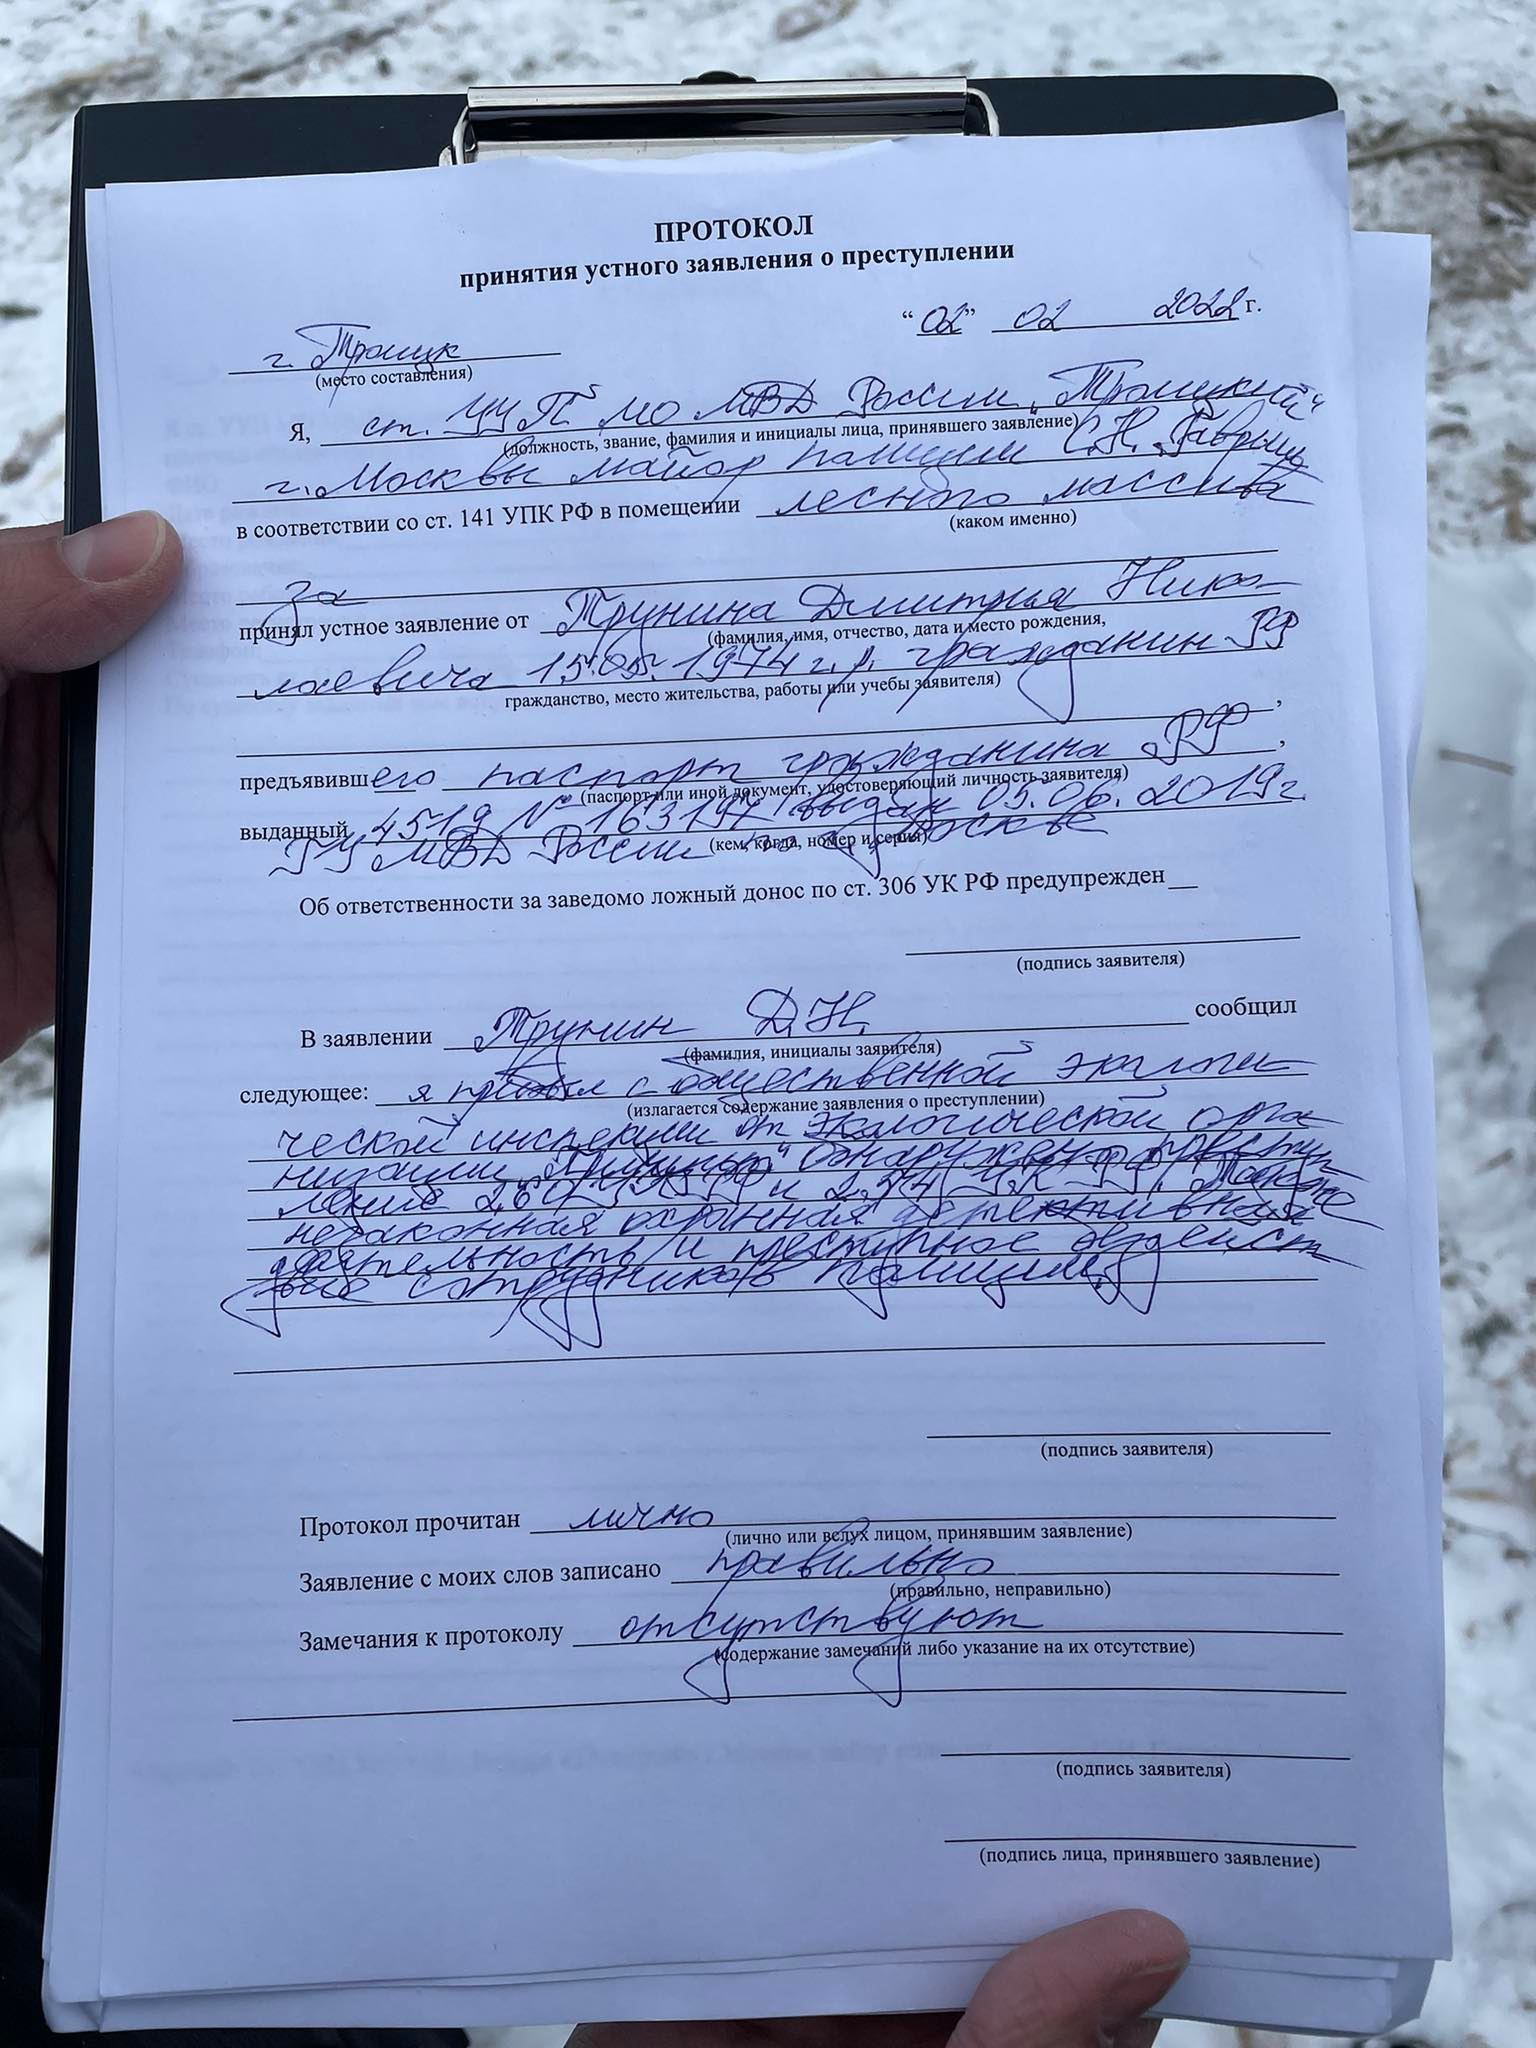 ПРОТОКОЛ
принятия устного заявления о преступлении
"02" 02 2022 г.
г. Троицк
(место составления)
Я, ст. УУП МО МВД России "Троицкий"
(должность, звание, фамилия и инициалы лица, принявшего заявление)
г. Москвы майор полиции С.Н.
в соответствии со ст. 141 УПК РФ в помещении лесного массива
(каком именно)
за
принял устное заявление от Трунина Дмитрия Нико-
(фамилия, имя, отчество, дата и место рождения,
лаевича 15.05.1974 г.р. гражданин РФ
гражданство, место жительства, работы или учебы заявителя)
,
предъявившего паспорт гражданина РФ,
(паспорт или иной документ, удостоверяющий личность заявителя)
выданный 4519 № 163197 выдан 05.06.2019г.
(кем, когда, номер и серия)
ГУ МВД России по г. Москве
Об ответственности за заведомо ложный донос по ст. 306 УК РФ предупрежден
(подпись заявителя)
В заявлении Трунин Д.Н. сообщил
(фамилия, инициалы заявителя)
следующее: я прибыл с общественной экологи
(излагается содержание заявления о преступлении)
ческой инспекции от экологической орга
низации обнаружено преступ
ление 260 УК РФ и УК РФ. Также
незаконная охранная детективная
деятельность и преступное бездейст
вие сотрудников полиции.
(подпись заявителя)
Протокол прочитан лично
(лично или вслух лицом, принявшим заявление)
Заявление с моих слов записано правильно
(правильно, неправильно)
Замечания к протоколу отсутствуют
(содержание замечаний либо указание на их отсутствие)
(подпись заявителя)
(подпись лица, принявшего заявление)